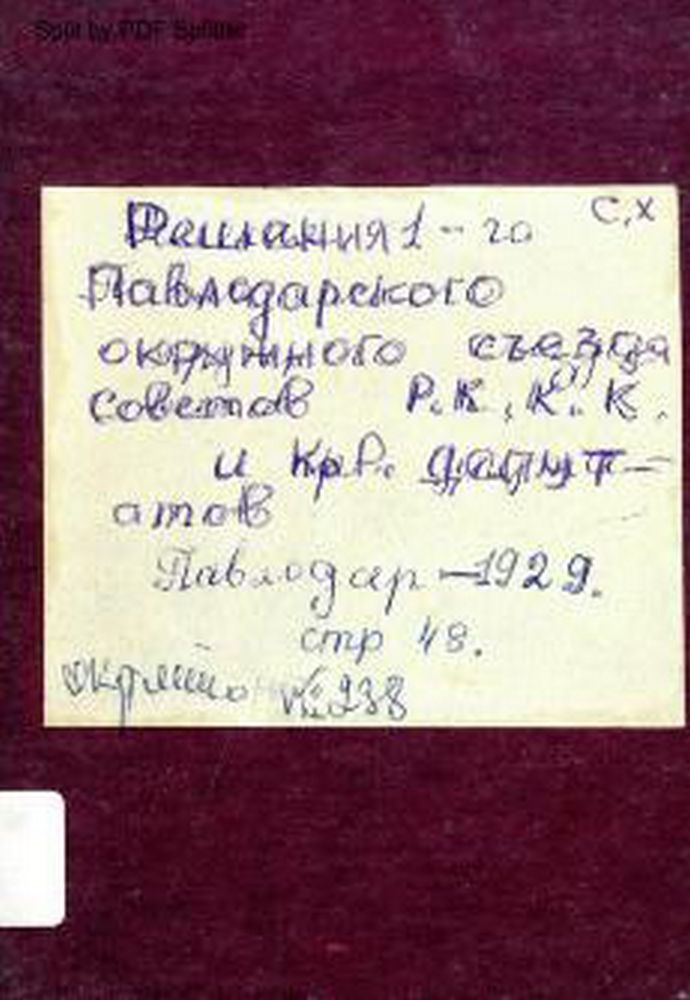 Split by PDF Splitter
с.х
1-го
Павлодарского
окружного съезда
советов Р.К., К.К.
и кр. депут-
атов
Павлодар — 1929.
стр 48.
№ 238